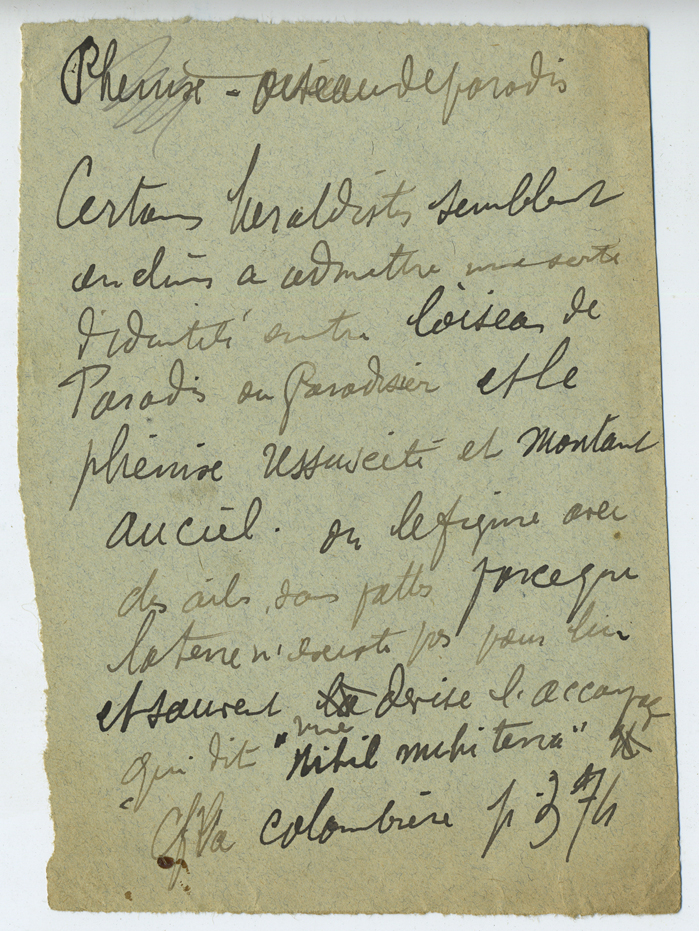 Phenixe - oiseau de paradis
Certains heraldistes semblent
enclins a admettre une sorte
d'identité entre l'oiseau de
Paradis ou Paradisier et le
phénixe ressuscité et montant
au ciel. on le figure avec
des ails, sans pattes parce que
la terre n'existe pas pour lui
et souvent une devise l'accompag
qui dit "Nihil mihi terra"
Cf Va Colombière p. 376